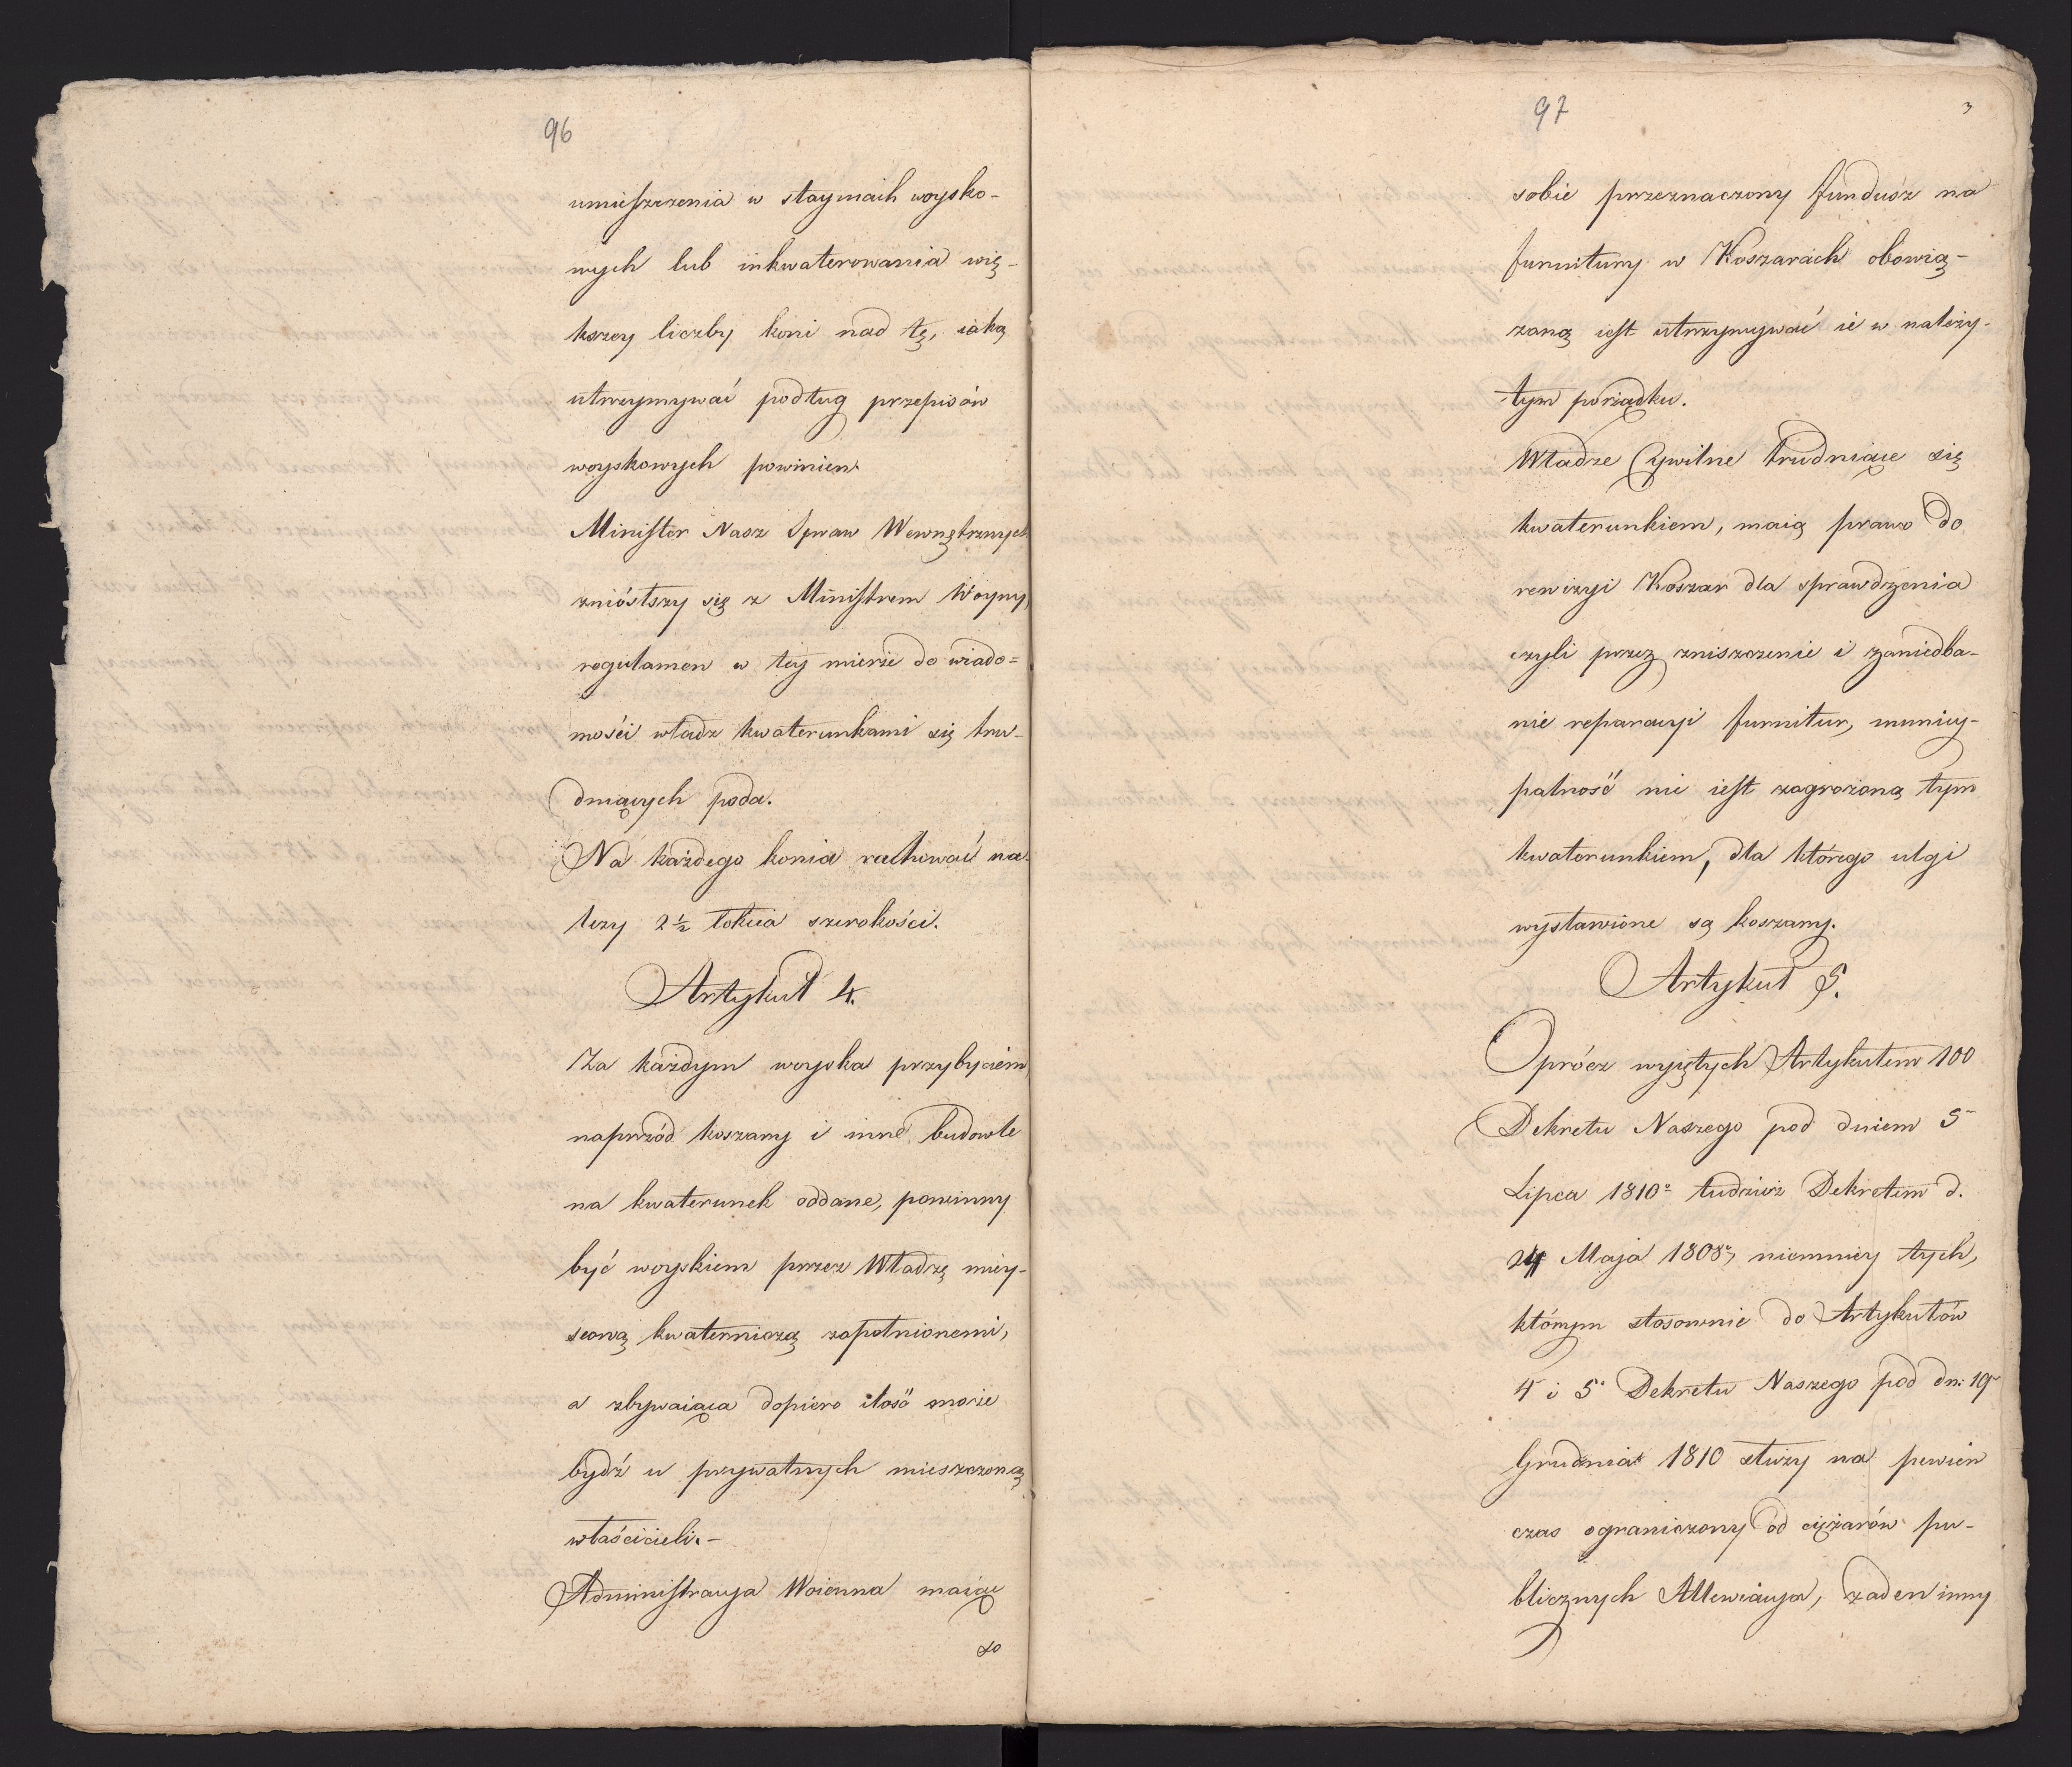 96
umieszczenia w stayniach woysko-
wych lub inkwaterowania wię-
kszey liczby koni nad tę, iaką
utrzymywać podług przepisów
woyskowych powinien.
Minister Nasz Spraw Wewnętrznych
zniósłszy się z Ministrem Woyny,
regulamen w tey mierze do wiado=
mości władz kwaterunkami się tru-
dniących poda.
Na każdego konia rachować na-
leży 2½ łokcia szerokości.
Artykuł 4.
Za każdym woyska przybyciem,
naprzód koszary i inne budowle
na kwaterunek oddane, powinny
być woyskiem przez Władzę miey-
scową kwaterniczą zapełnionemi,
a zbywaiąca dopiero ilość może
bydź u prywatnych mieszczoną
właścicieli.-
Administracya Woienna maiąc
so
97
3
sobie przeznaczony fundusz na
furnitury w Koszarach obowią-
zaną iest utrzymywać ie w należy-
tym porządku.
Władze Cywilne trudniące się
kwaterunkiem, maią prawo do
rewizyi Koszar dla sprawdzenia
czyli przez zniszczenie i zaniedba-
nie reparacyi furnitur, municy-
palność nie iest zagrożoną tym
kwaterunkiem, dla którego ulgi
wystawione są koszary.
Artykuł 5.
Oprócz wyiętych Artykułem 100
Dekretu Naszego pod dniem 5
Lipca 1810º tudzież Dekretem d.
24 Maja 1808º, niemniey tych,
którym stosownie do Artykułów
4 i 5 Dekretu Naszego pod dn: 19
Grudnia 1810 służy na pewien
czas ograniczony od ciężarów pu-
blicznych Allewiacya, żaden inny